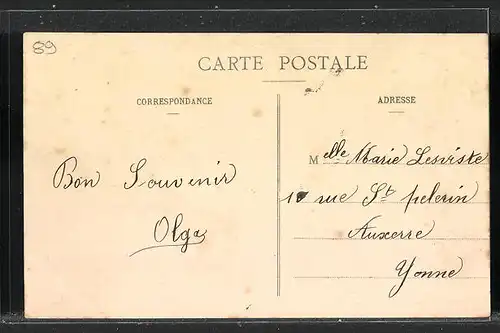 89
CARTE POSTALE
CORRESPONDANCE
ADRESSE
Bon Souvenir
Olga
Melle Marie Lesviste
10 rue St pelerin
Auxerre
Yonne